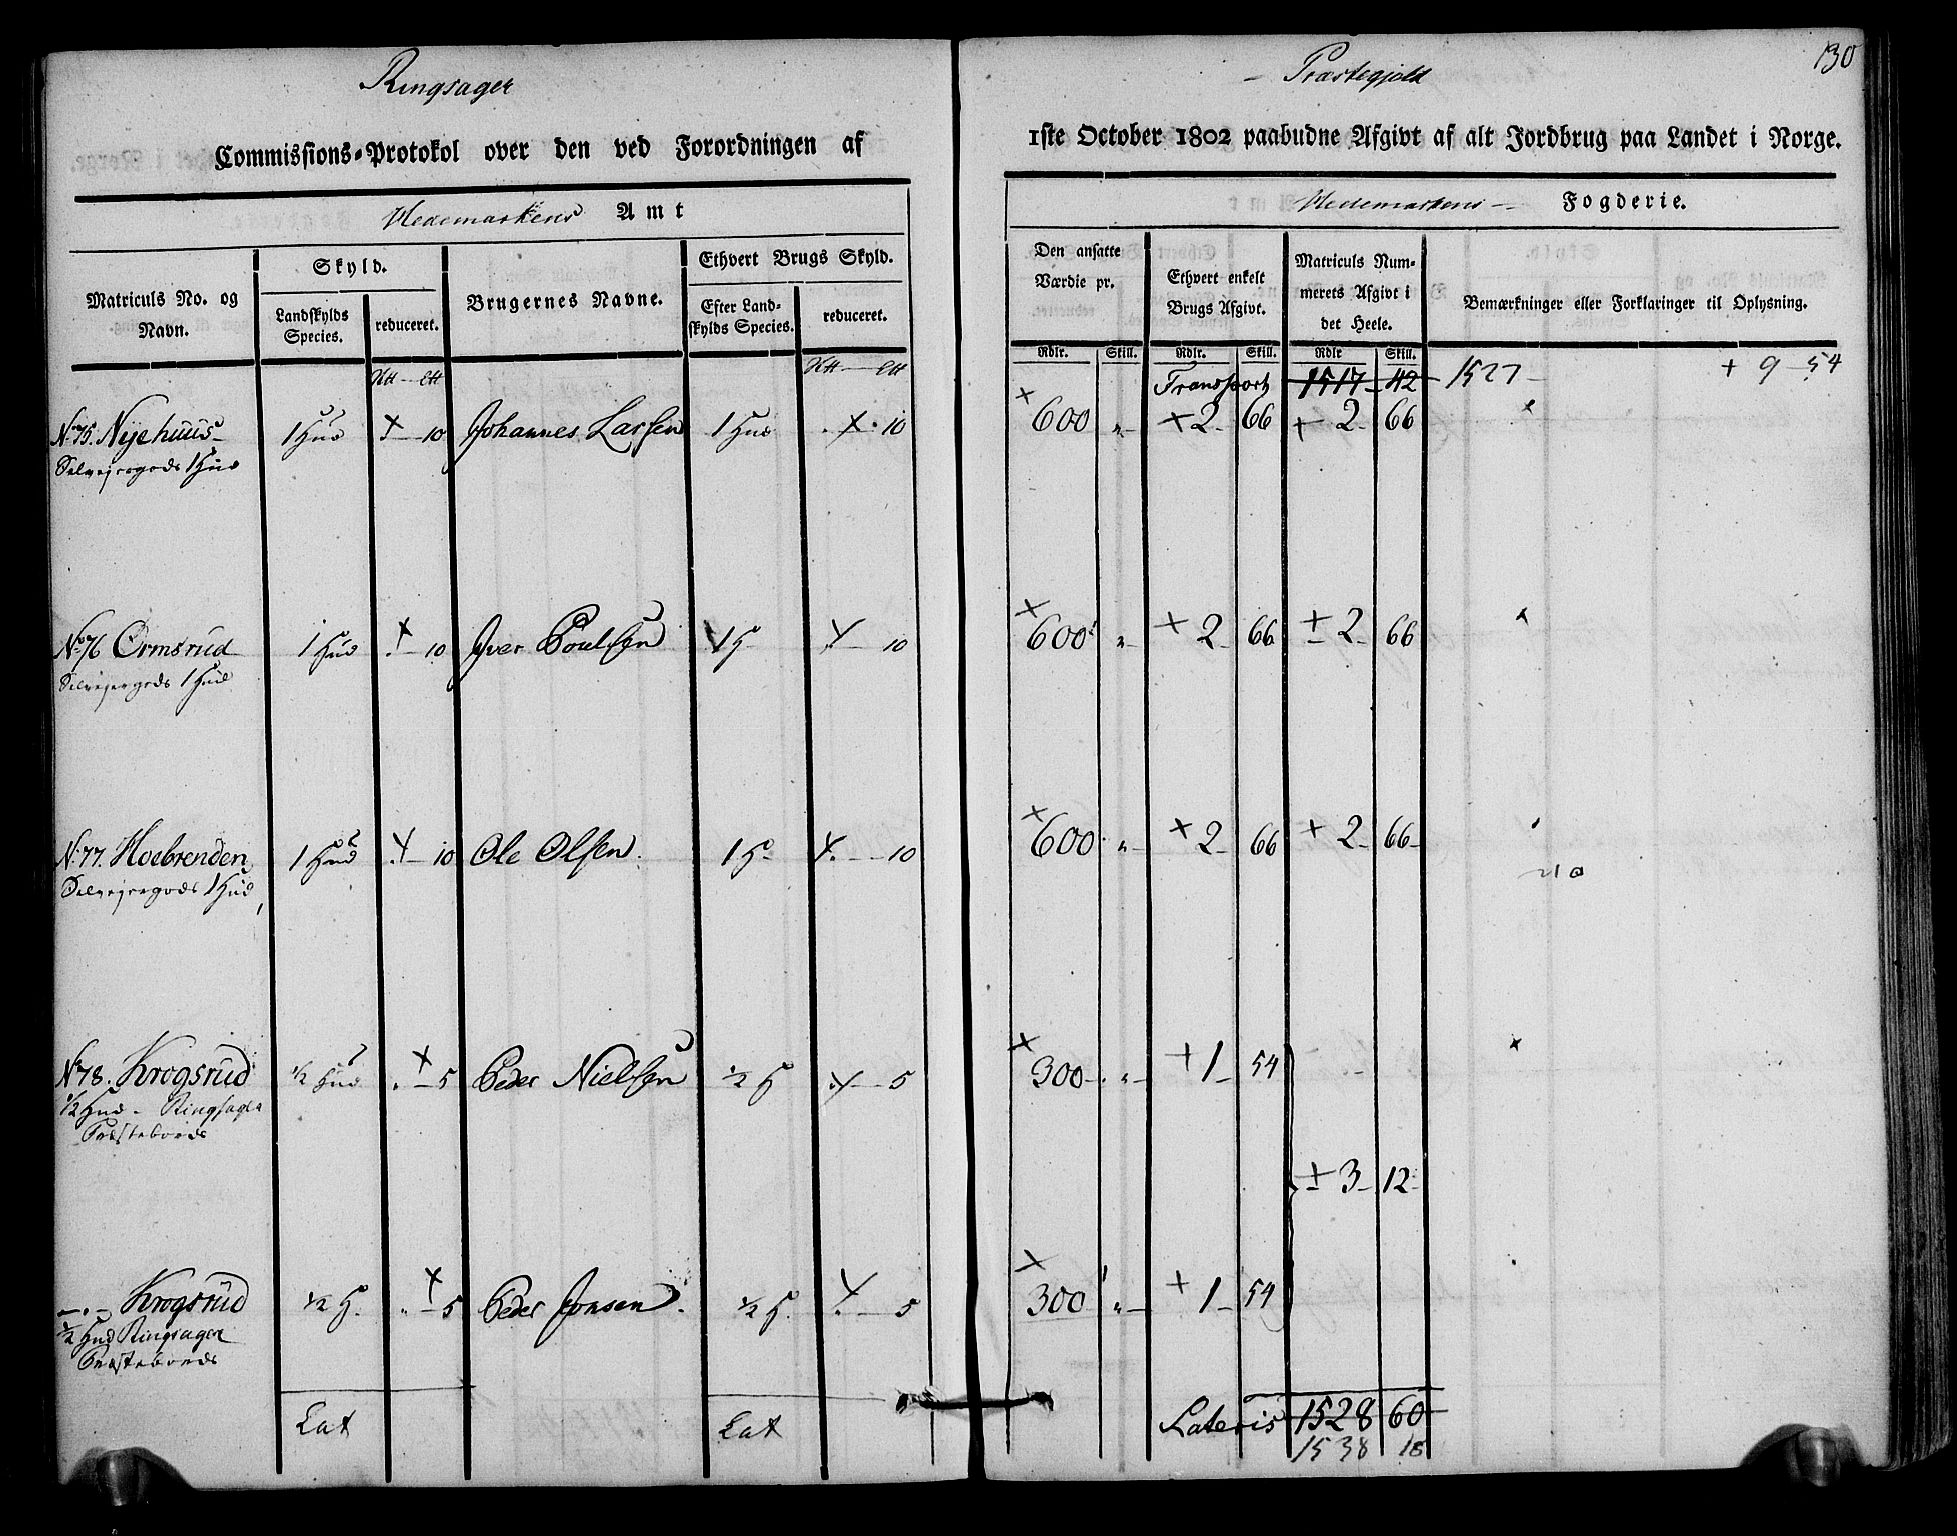 130
Ringsager – Præstegjeld
Commissions-Protokol over den ved Forordningen af 1ste October 1802 paabudne Afgivt af alt Jordbrug paa Landet i Norge.
Hedemarkens Amt
Hedemarkens Fogderie.
Matriculs No. og Navn.
Skyld.
Landskylds Species.
reduceret.
Brugernes Navne.
Ethvert Brugs Skyld.
Efter Landskylds Species.
reduceret.
Den ansatte Værdie pr.
Ethvert enkelt Brugs Afgivt.
Matriculs Nummerets Afgivt i det Heele.
Bemærkninger eller Forklaringer til Oplysning.
Rdlr. Skill. Rdlr. Skill. Rdlr Skill.
Transport 1517 – 42 – 1527 – + 9 – 54
No 75. Nyehuus – 1 Hud 10 Johannes Larsen 1 Hud 10 600 „ 2 66 2 66
Selvejergods 1 Hud
No 76 Ormsrud 1 Hud 10 Iver Poulsen 1 H 10 600 „ 2 66 2 66
Selvejergods 1 Hud
No 77. Hoebrenden 1 Hud 10 Ole Olsen. 1 H 10 600 „ 2 66 2 66
Selvejergods 1 Hud
No 78. Krogsrud ½ Hud 5 Peder Nielsen ½ H 5 300 „ 1 54
½ Hud – Ringsager
Præstebords
3 12
– . – Krogsrud ½ H. 5 Peder Jonsen. ½ H. 5 300 „ 1 54
½ Hud Ringsager
Præstebords
Lat Lat Lateris 1528 60
1538 18